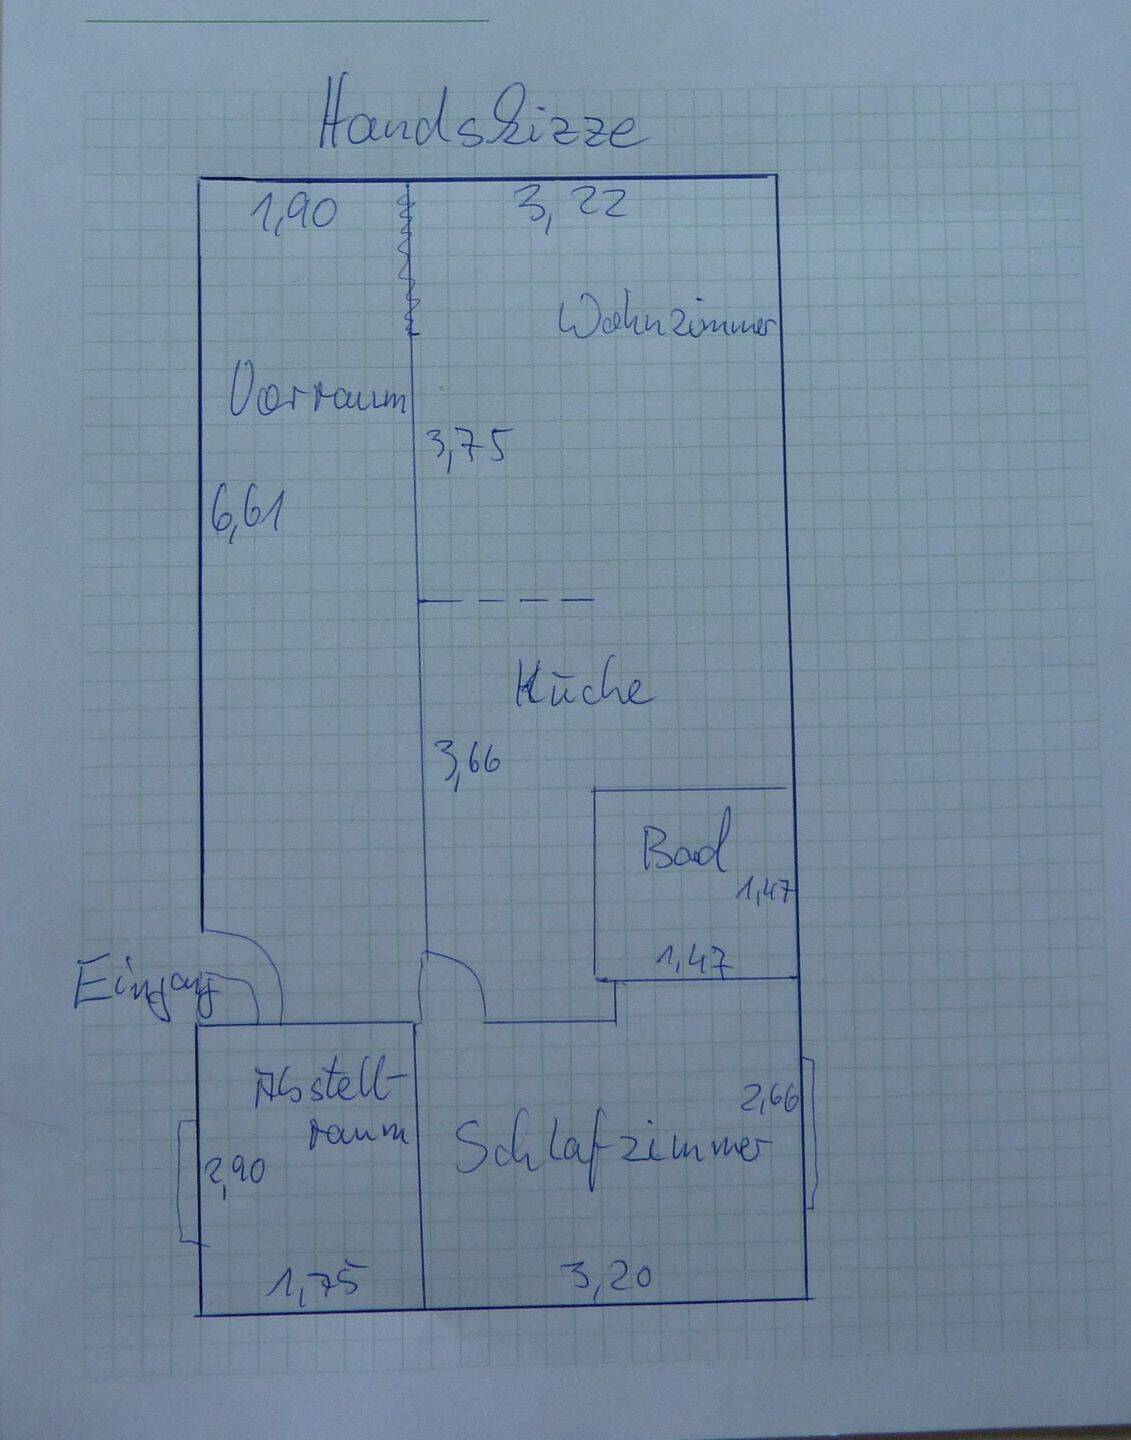 Handskizze
1,90
3,22
Wohnzimmer
Vorraum
3,75
6,61
Küche
3,66
Bad
1,47
1,47
Eingang
Abstell-
raum
2,66
Schlafzimmer
2,90
1,75
3,20